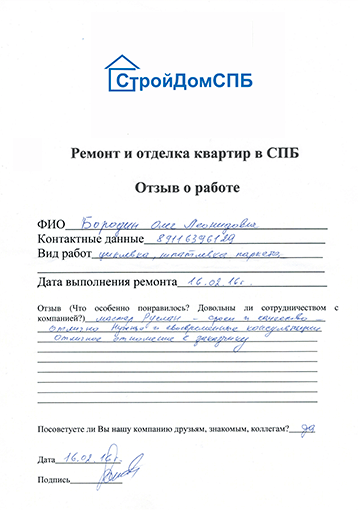 СтройДомСПБ
Ремонт и отделка квартир в СПБ
Отзыв о работе
ФИО Бородин Олег Леонидович
Контактные данные 89116396129
Вид работ циклевка, шпатлевка паркета
Дата выполнения ремонта 16.02.16г.
Отзыв (Что особенно понравилось? Довольны ли сотрудничеством с
компанией?) мастер Руслан - сроки и качество -
отлично и своевременные консультации
отличное отношение к заказчику
Посоветуете ли Вы нашу компанию друзьям, знакомым, коллегам? да
Дата 16.02.16г.
Подпись